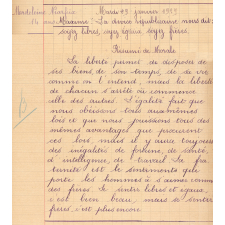 Madeleine Mardi 13 janvier 1925
14 ans Maxime : La devise républicaine nous dit :
soyez libres, soyez égaux, soyez frères.
Résumé de Morale
La liberté permet de disposer de
ses biens, de son temps, de sa vie
comme on l'entend, mais la liberté
de chacun s'arrête où commence
celle des autres. L'égalité fait que
nous obéissons tous aux mêmes
lois et que nous jouissons tous des
mêmes avantages que procurent
ces lois, mais il y aura toujours
des inégalités de fortune, de santé,
d'intelligence, de travail. La fra
ternité est le sentiment qui
porte les hommes à s'aimer comme
des frères. Se sentir libres et égaux,
c'est bien beau, mais se sentir
frères, c'est plus encore.
B